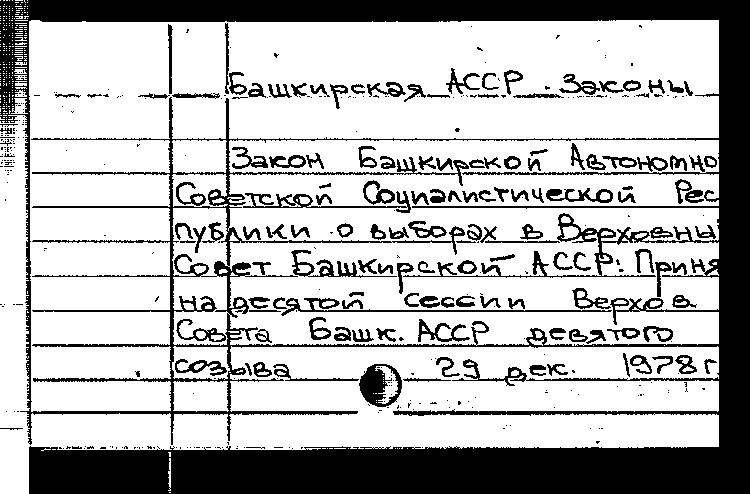 Башкирская АССР. Законы
Закон Башкирской Автономно
Советской Социалистической Рес
публики о выборах в Верховны
Совет Башкирской АССР: Приня
на десятой сессии Верхов.
Совета Башк. АССР девятого
созыва 29 дек. 1978 г.